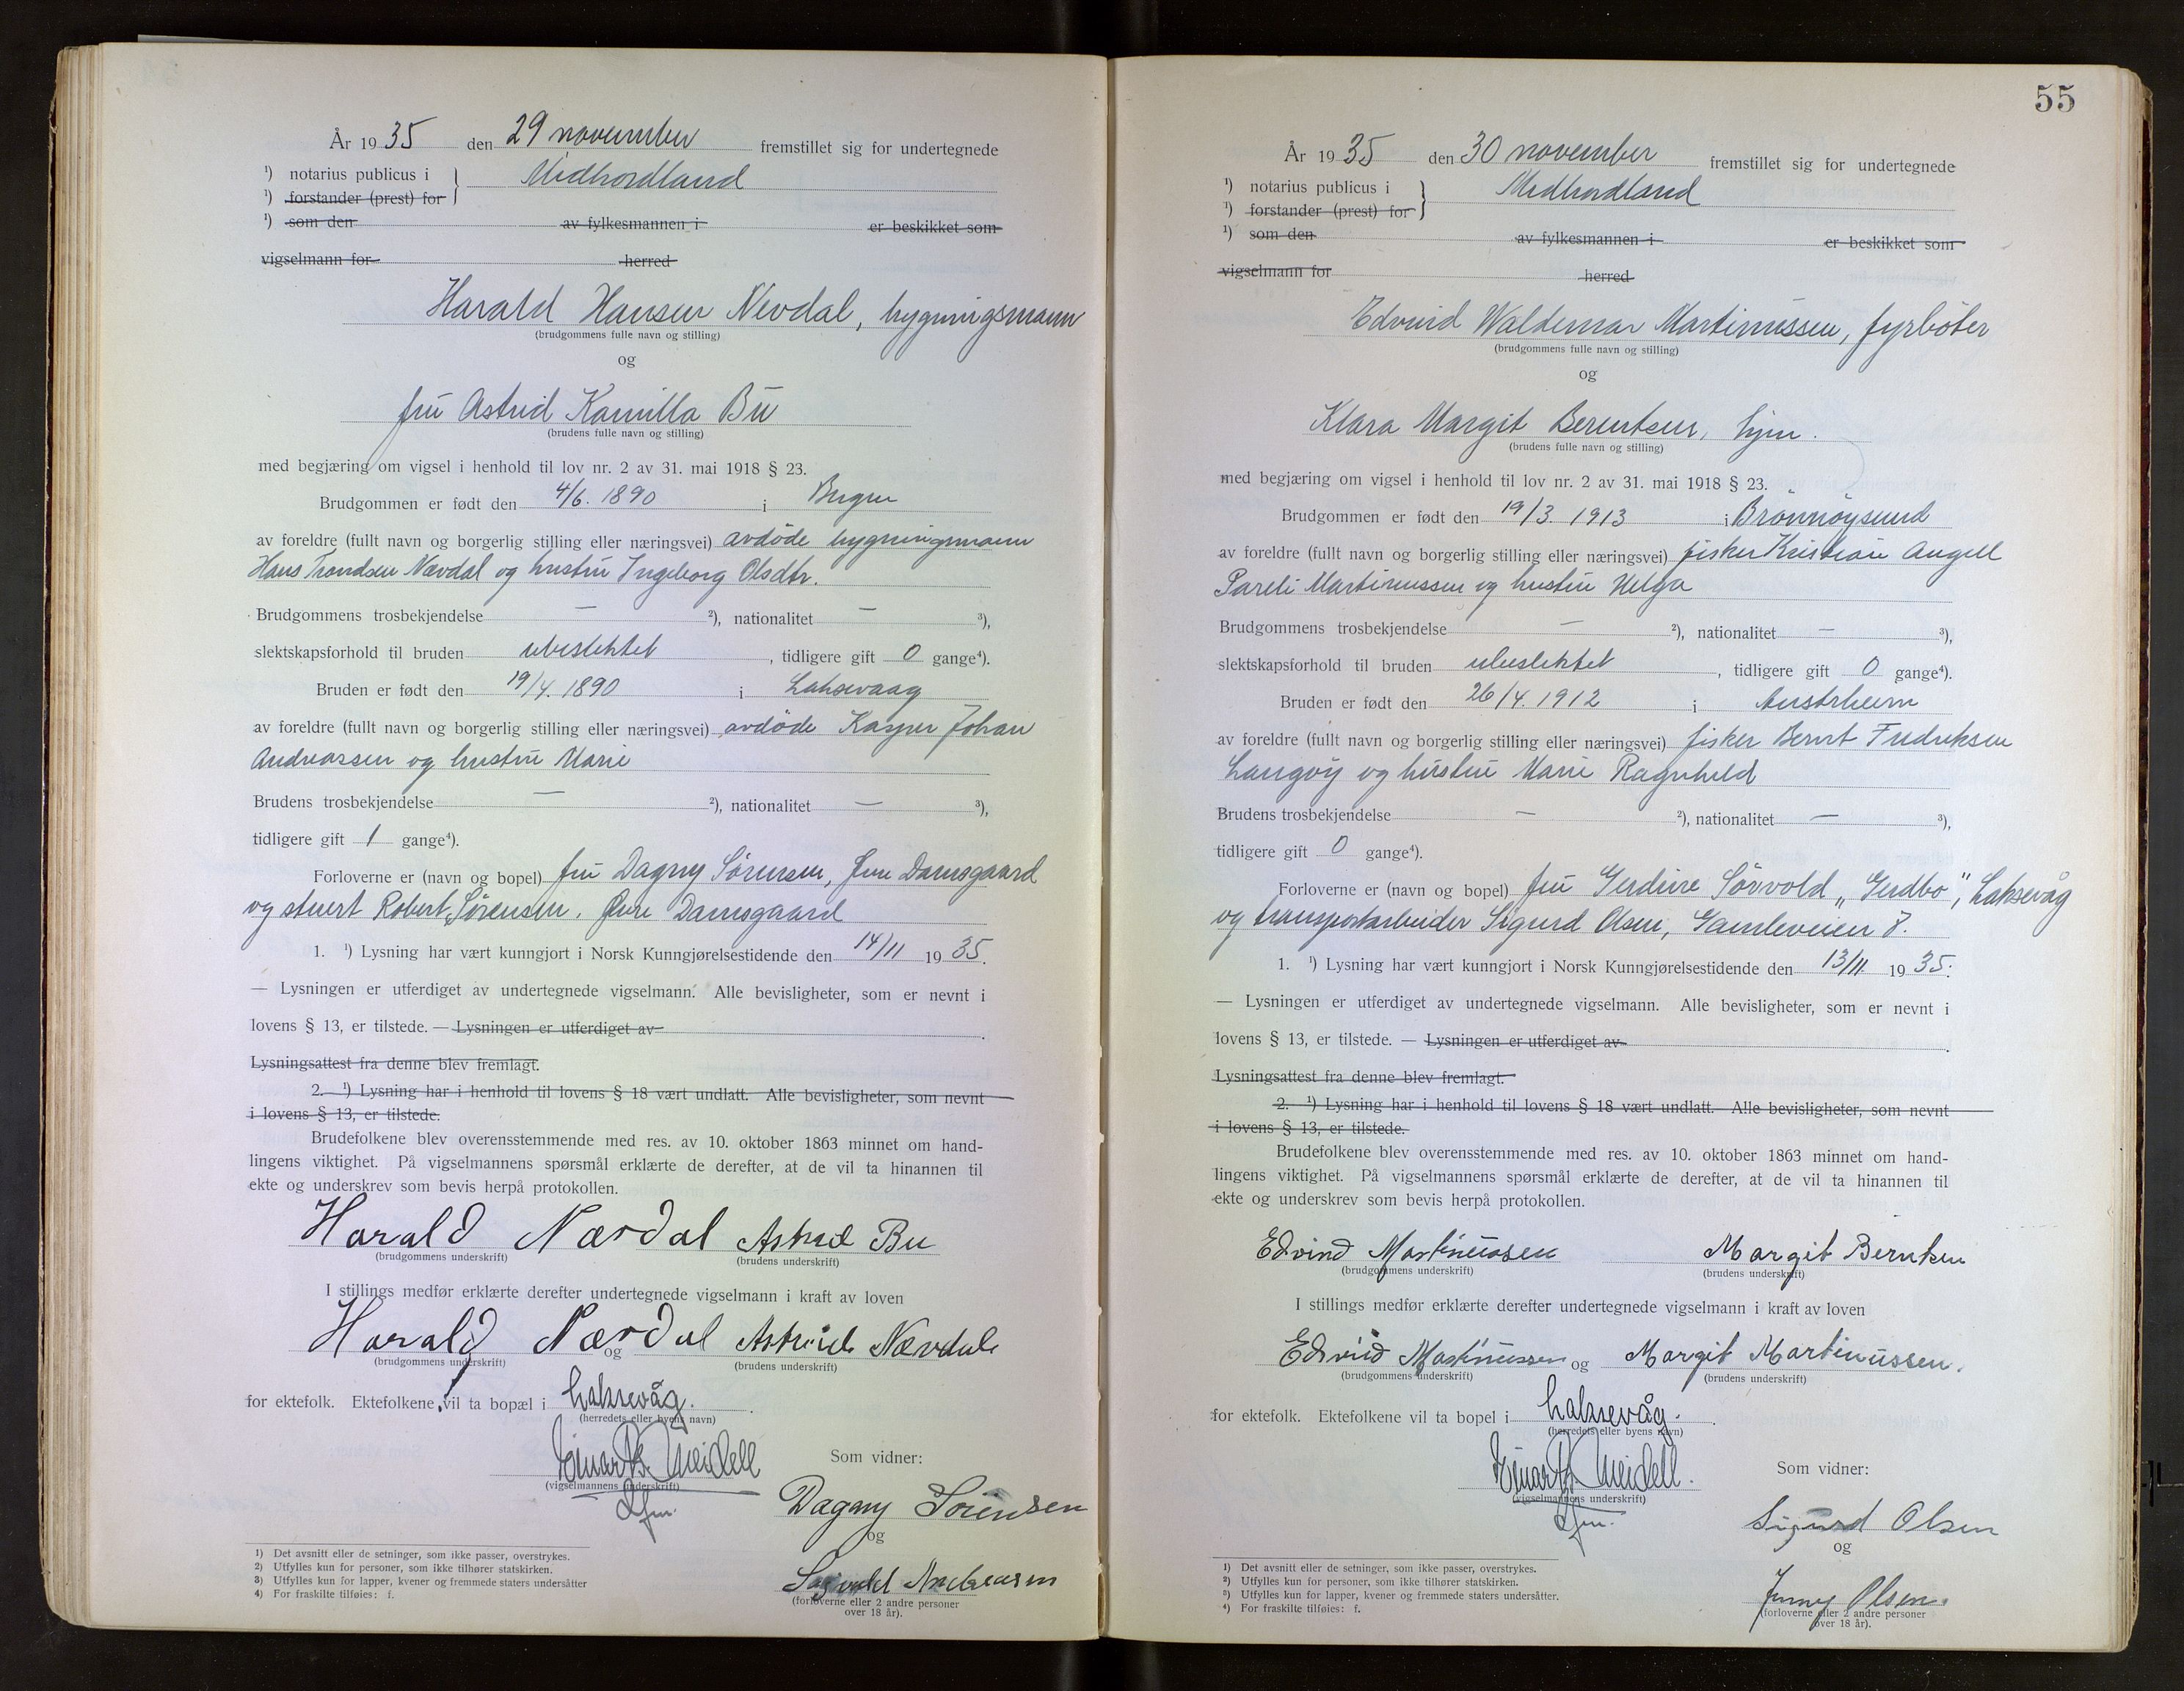 År 1935 den 29 november fremstillet sig for undertegnede
¹) notarius publicus i } Midhordland
¹) forstander (prest) for
¹) som den av fylkesmannen i er beskikket som
vigselmann for herred
Harald Hansen Nevdal, bygningsmann
(brudgommens fulle navn og stilling)
og
fru Astrid Kamilla Bu
(brudens fulle navn og stilling)
med begjæring om vigsel i henhold til lov nr. 2 av 31. mai 1918 § 23.
Brudgommen er født den 4/6. 1890 i Bergen
av foreldre (fullt navn og borgerlig stilling eller næringsvei) avdöde bygningsmann
Hans Trondsen Nævdal og hustru Ingeborg Olsdtr.
Brudgommens trosbekjendelse — ²), nationalitet — ³),
slektskapsforhold til bruden ubeslektet, tidligere gift 0 gange⁴).
Bruden er født den 19/4. 1890 i Laksevaag
av foreldre (fullt navn og borgerlig stilling eller næringsvei) avdöde Kasper Johan
Andreassen og hustru Marie
Brudens trosbekjendelse — ²), nationalitet — ³),
tidligere gift 1 gange⁴).
Forloverne er (navn og bopel) fru Dagny Sörensen, Övre Damsgaard
og stuert Robert Sörensen, Övre Damsgaard
1. ¹) Lysning har vært kunngjort i Norsk Kunngjørelsestidende den 14/11 1935.
— Lysningen er utferdiget av undertegnede vigselmann. Alle bevisligheter, som er nevnt i
lovens § 13, er tilstede. — Lysningen er utferdiget av
Lysningsattest fra denne blev fremlagt.
2. ¹) Lysning har i henhold til lovens § 18 vært undlatt. Alle bevisligheter, som nevnt
i lovens § 13, er tilstede.
Brudefolkene blev overensstemmende med res. av 10. oktober 1863 minnet om hand-
lingens viktighet. På vigselmannens spørsmål erklærte de derefter, at de vil ta hinannen til
ekte og underskrev som bevis herpå protokollen.
Harald Nævdal Astrid Bu
(brudgommens underskrift) (brudens underskrift)
I stillings medfør erklærte derefter undertegnede vigselmann i kraft av loven
Harald Nævdal og Astrid Nævdal
(brudgommens underskrift) (brudens underskrift)
for ektefolk. Ektefolkene vil ta bopæl i Laksevåg.
(herredets eller byens navn)
Einar B. Meidell
(vigselmannens underskrift)
Som vidner:
Dagny Sörensen
og
Andreasen
(forloverne eller 2 andre personer
over 18 år).
¹) Det avsnitt eller de setninger, som ikke passer, overstrykes.
²) Utfylles kun for personer, som ikke tilhører statskirken.
³) Utfylles kun for lapper, kvener og fremmede staters undersåtter
⁴) For fraskilte tilføies: f.
55
År 1935 den 30 november fremstillet sig for undertegnede
¹) notarius publicus i } Midhordland
¹) forstander (prest) for
¹) som den av fylkesmannen i er beskikket som
vigselmann for herred
Edvind Waldemar Martinussen, fyrböter
(brudgommens fulle navn og stilling)
og
Klara Margit Berentsen, hjm.
(brudens fulle navn og stilling)
med begjæring om vigsel i henhold til lov nr. 2 av 31. mai 1918 § 23.
Brudgommen er født den 19/3. 1913 i Brönnöysund
av foreldre (fullt navn og borgerlig stilling eller næringsvei) fisker Kristian Angell
Pareli Martinussen og hustru Helga
Brudgommens trosbekjendelse — ²), nationalitet — ³),
slektskapsforhold til bruden ubeslektet, tidligere gift 0 gange⁴).
Bruden er født den 26/4. 1912 i Austrheim
av foreldre (fullt navn og borgerlig stilling eller næringsvei) fisker Bernt Fredriksen
Langöy og hustru Marie Ragnhild
Brudens trosbekjendelse — ²), nationalitet — ³),
tidligere gift 0 gange⁴).
Forloverne er (navn og bopel) fru Gerdine Sörvold „Gerdbo", Laksevåg
og transportarbeider Sigurd Olsen, Gamleveien 8.
1. ¹) Lysning har vært kunngjort i Norsk Kunngjørelsestidende den 13/11. 1935.
— Lysningen er utferdiget av undertegnede vigselmann. Alle bevisligheter, som er nevnt i
lovens § 13, er tilstede. — Lysningen er utferdiget av
Lysningsattest fra denne blev fremlagt.
2. ¹) Lysning har i henhold til lovens § 18 vært undlatt. Alle bevisligheter, som nevnt
i lovens § 13, er tilstede.
Brudefolkene blev overensstemmende med res. av 10. oktober 1863 minnet om hand-
lingens viktighet. På vigselmannens spørsmål erklærte de derefter, at de vil ta hinannen til
ekte og underskrev som bevis herpå protokollen.
Edvind Martinussen Margit Berntsen
(brudgommens underskrift) (brudens underskrift)
I stillings medfør erklærte derefter undertegnede vigselmann i kraft av loven
Edvind Martinussen og Margit Martinussen.
(brudgommens underskrift) (brudens underskrift)
for ektefolk. Ektefolkene vil ta bopel i Laksevåg.
(herredets eller byens navn)
Einar B. Meidell.
(vigselmannens underskrift)
Som vidner:
Sigurd Olsen
og
Jenny Olsen.
(forloverne eller 2 andre personer
over 18 år).
¹) Det avsnitt eller de setninger, som ikke passer, overstrykes.
²) Utfylles kun for personer, som ikke tilhører statskirken.
³) Utfylles kun for lapper, kvener og fremmede staters undersåtter.
⁴) For fraskilte tilføies: f.